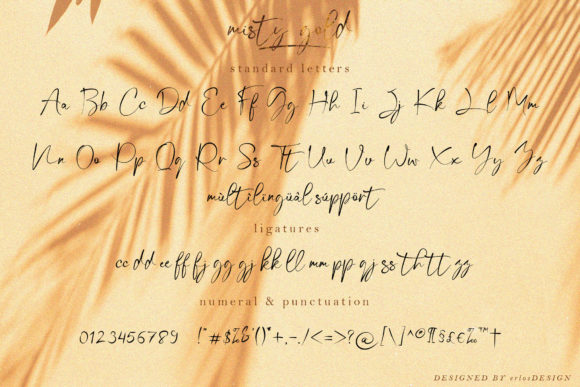 misty gold
standard letters
Aa Bb Cc Dd Ee Ff Gg Hh Ii Jj Kk Ll Mm
Nn Oo Pp Qq Rr Ss Tt Uu Vv Ww Xx Yy Zz
mùltilïngüâl súppört
ligatures
cc dd ee ff fj gg gj kk ll mm pp qj ss th tt zz
numeral & punctuation
0123456789 !"#$%&'()*+,-./<=>?@[\]^©¶§£€‰™†
DESIGNED BY erlosDESIGN